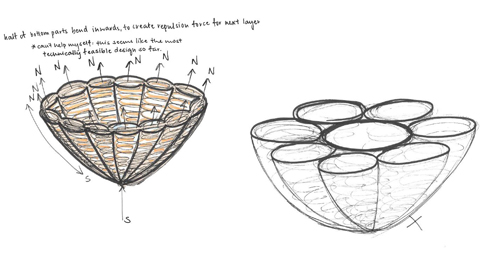 half of bottom parts bend inwards, to create repulsion force for next layer
*can't help myself: this seems like the most
technically feasible design so far.
N N N N N N
N
N
N
S
S